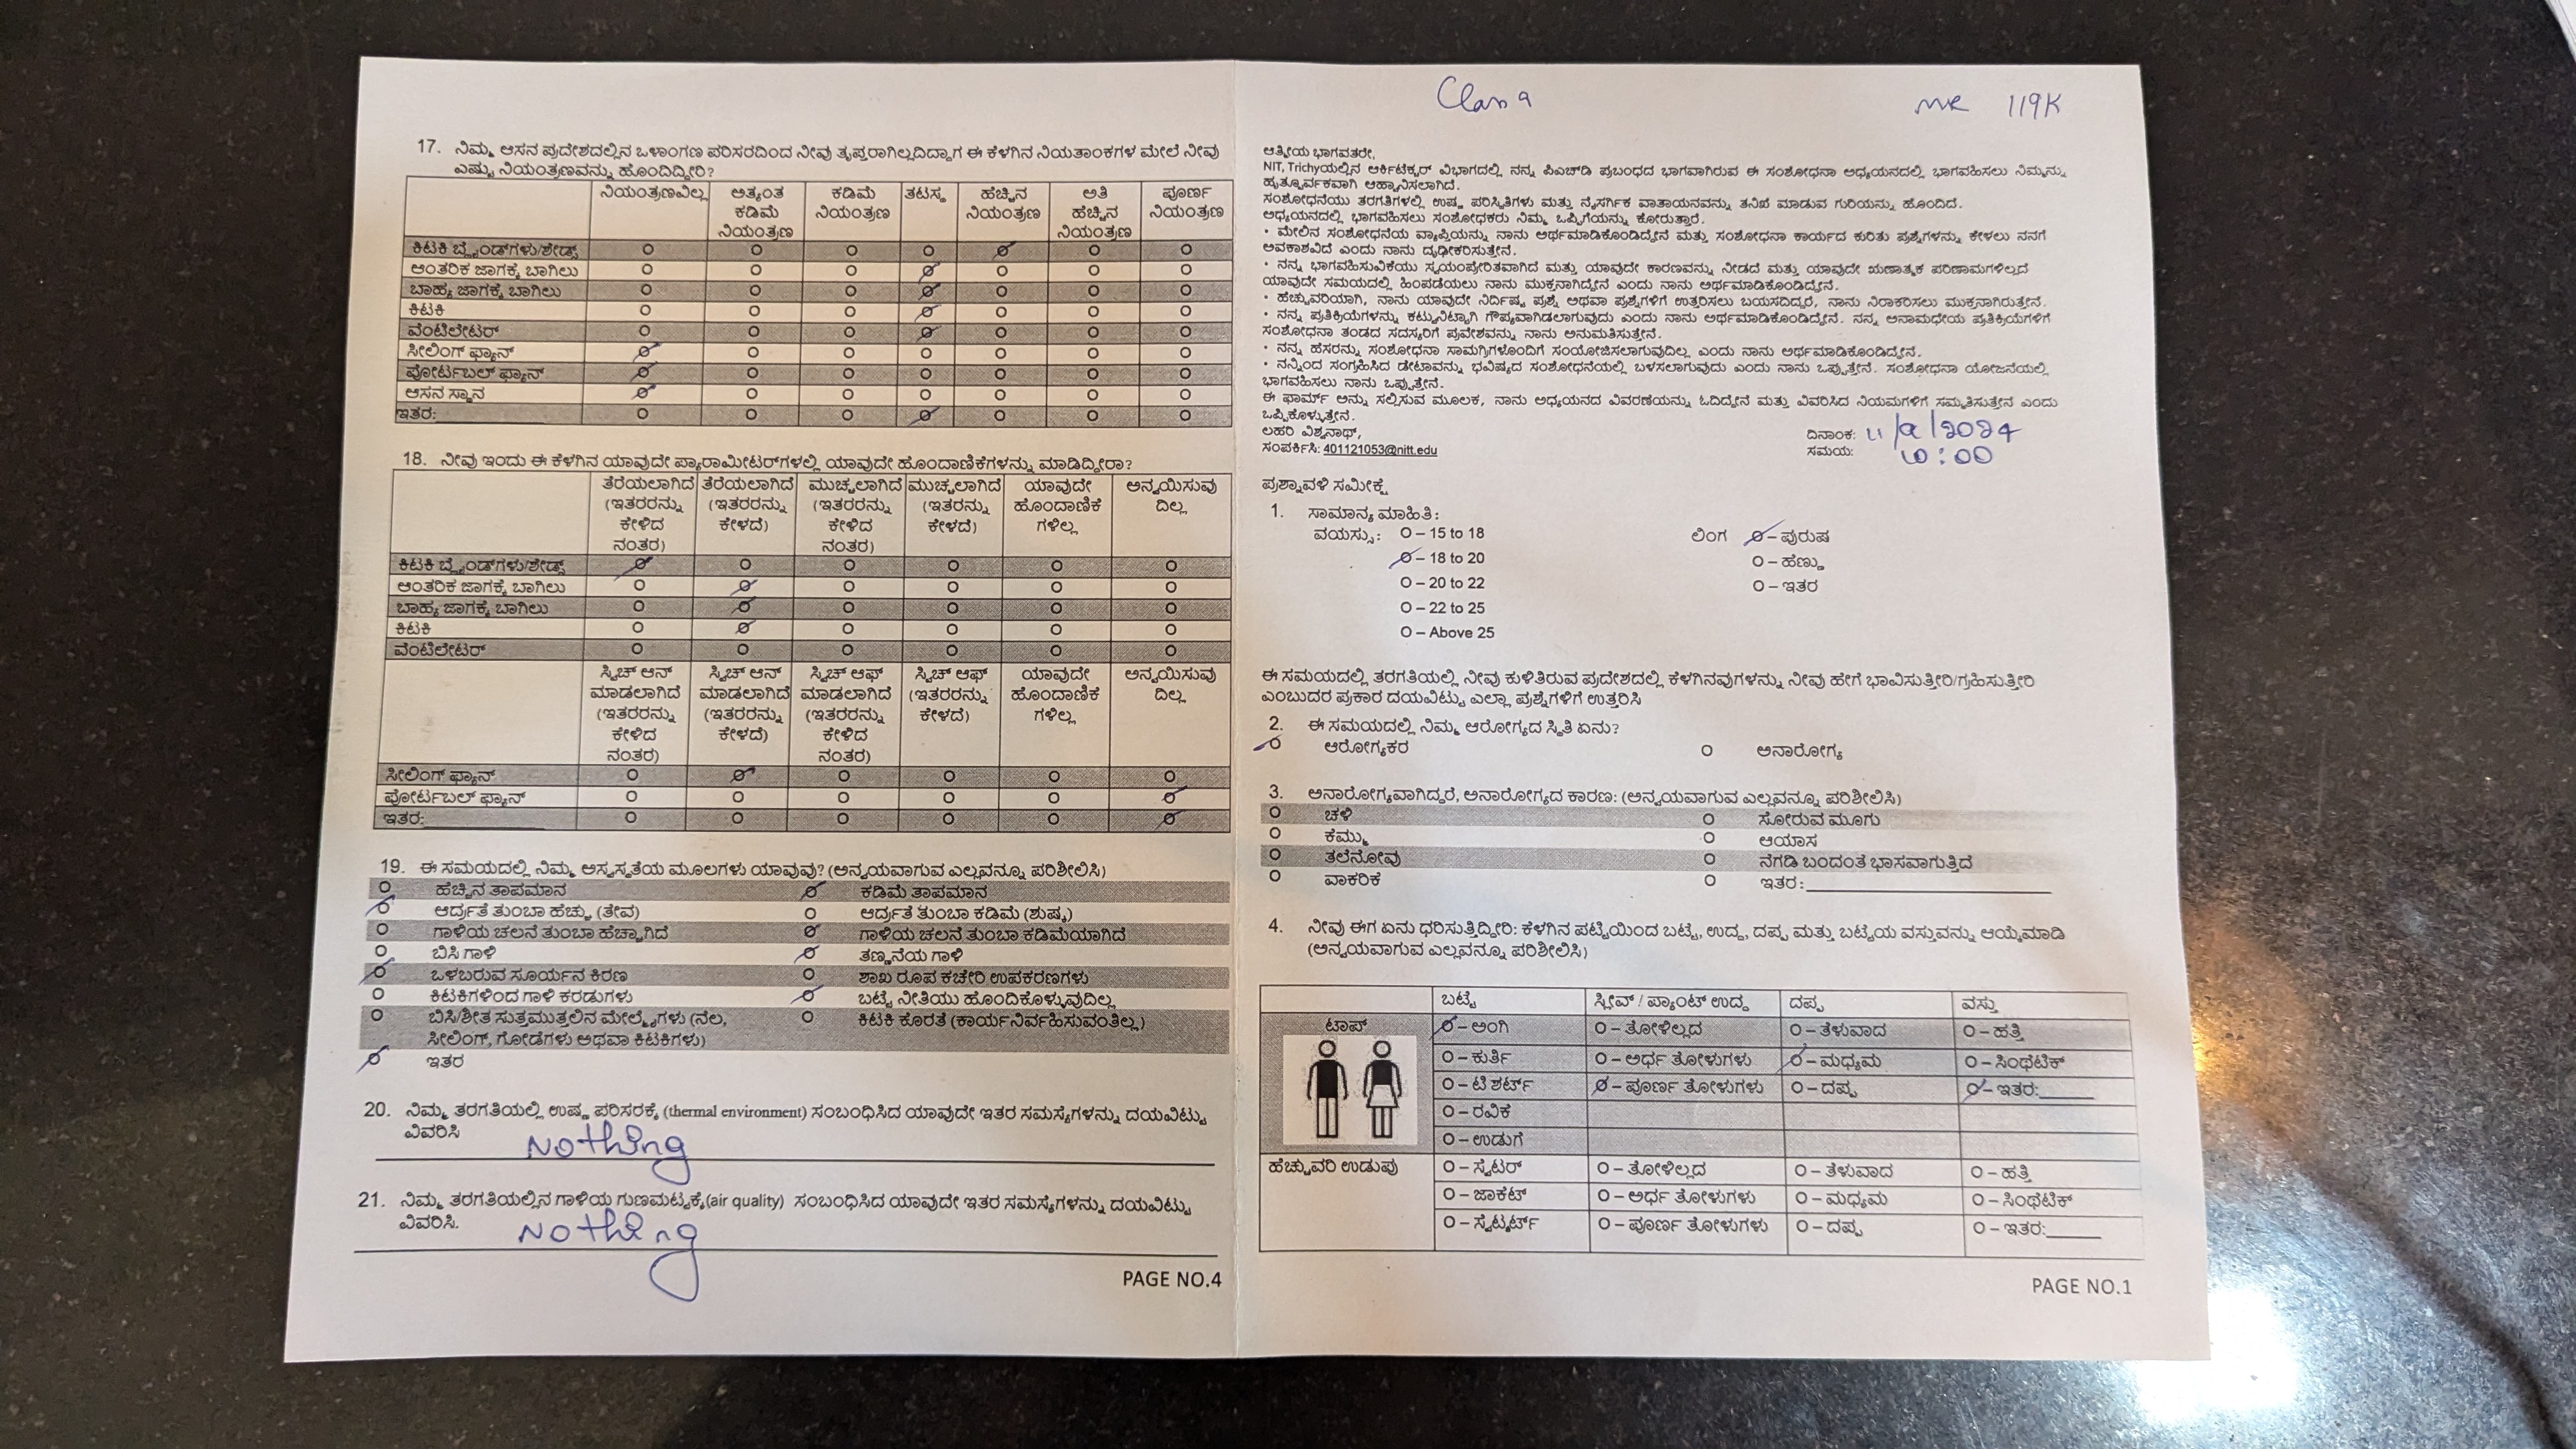 17. ನಿಮ್ಮ ಆಸನ ಪ್ರದೇಶದಲ್ಲಿನ ಒಳಾಂಗಣ ಪರಿಸರದಿಂದ ನೀವು ತೃಪ್ತರಾಗಿಲ್ಲದಿದ್ದಾಗ ಈ ಕೆಳಗಿನ ನಿಯತಾಂಕಗಳ ಮೇಲೆ ನೀವು
ಎಷ್ಟು ನಿಯಂತ್ರಣವನ್ನು ಹೊಂದಿದ್ದೀರಿ?
ನಿಯಂತ್ರಣವಿಲ್ಲ ಅತ್ಯಂತ ಕಡಿಮೆ ತಟಸ್ಥ ಹೆಚ್ಚಿನ ಅತಿ ಪೂರ್ಣ
ಕಡಿಮೆ ನಿಯಂತ್ರಣ ನಿಯಂತ್ರಣ ಹೆಚ್ಚಿನ ನಿಯಂತ್ರಣ
ನಿಯಂತ್ರಣ ನಿಯಂತ್ರಣ
ಕಿಟಕಿ ಬ್ಲೈಂಡ್‌ಗಳು/ಶೇಡ್ಸ್
ಆಂತರಿಕ ಜಾಗಕ್ಕೆ ಬಾಗಿಲು
ಬಾಹ್ಯ ಜಾಗಕ್ಕೆ ಬಾಗಿಲು
ಕಿಟಕಿ
ವೆಂಟಿಲೇಟರ್
ಸೀಲಿಂಗ್ ಫ್ಯಾನ್
ಪೋರ್ಟಬಲ್ ಫ್ಯಾನ್
ಆಸನ ಸ್ಥಾನ
ಇತರ:
18. ನೀವು ಇಂದು ಈ ಕೆಳಗಿನ ಯಾವುದೇ ಪ್ಯಾರಾಮೀಟರ್‌ಗಳಲ್ಲಿ ಯಾವುದೇ ಹೊಂದಾಣಿಕೆಗಳನ್ನು ಮಾಡಿದ್ದೀರಾ?
ತೆರೆಯಲಾಗಿದೆ ತೆರೆಯಲಾಗಿದೆ ಮುಚ್ಚಲಾಗಿದೆ ಮುಚ್ಚಲಾಗಿದೆ ಯಾವುದೇ ಅನ್ವಯಿಸುವು
(ಇತರರನ್ನು (ಇತರರನ್ನು (ಇತರರನ್ನು (ಇತರನ್ನು ಹೊಂದಾಣಿಕೆ ದಿಲ್ಲ
ಕೇಳಿದ ಕೇಳದೆ) ಕೇಳಿದ ಕೇಳದೆ) ಗಳಿಲ್ಲ
ನಂತರ) ನಂತರ)
ಕಿಟಕಿ ಬ್ಲೈಂಡ್‌ಗಳು/ಶೇಡ್ಸ್
ಆಂತರಿಕ ಜಾಗಕ್ಕೆ ಬಾಗಿಲು
ಬಾಹ್ಯ ಜಾಗಕ್ಕೆ ಬಾಗಿಲು
ಕಿಟಕಿ
ವೆಂಟಿಲೇಟರ್
ಸ್ವಿಚ್ ಆನ್ ಸ್ವಿಚ್ ಆನ್ ಸ್ವಿಚ್ ಆಫ್ ಸ್ವಿಚ್ ಆಫ್ ಯಾವುದೇ ಅನ್ವಯಿಸುವು
ಮಾಡಲಾಗಿದೆ ಮಾಡಲಾಗಿದೆ ಮಾಡಲಾಗಿದೆ (ಇತರರನ್ನು ಹೊಂದಾಣಿಕೆ ದಿಲ್ಲ
(ಇತರರನ್ನು (ಇತರರನ್ನು (ಇತರರನ್ನು ಕೇಳದೆ) ಗಳಿಲ್ಲ
ಕೇಳಿದ ಕೇಳದೆ) ಕೇಳಿದ
ನಂತರ) ನಂತರ)
ಸೀಲಿಂಗ್ ಫ್ಯಾನ್
ಪೋರ್ಟಬಲ್ ಫ್ಯಾನ್
ಇತರ:
19. ಈ ಸಮಯದಲ್ಲಿ ನಿಮ್ಮ ಅಸ್ವಸ್ಥತೆಯ ಮೂಲಗಳು ಯಾವುವು? (ಅನ್ವಯವಾಗುವ ಎಲ್ಲವನ್ನೂ ಪರಿಶೀಲಿಸಿ)
ಹೆಚ್ಚಿನ ತಾಪಮಾನ ಕಡಿಮೆ ತಾಪಮಾನ
ಆರ್ದ್ರತೆ ತುಂಬಾ ಹೆಚ್ಚು (ತೇವ) ಆರ್ದ್ರತೆ ತುಂಬಾ ಕಡಿಮೆ (ಶುಷ್ಕ)
ಗಾಳಿಯ ಚಲನೆ ತುಂಬಾ ಹೆಚ್ಚಾಗಿದೆ ಗಾಳಿಯ ಚಲನೆ ತುಂಬಾ ಕಡಿಮೆಯಾಗಿದೆ
ಬಿಸಿ ಗಾಳಿ ತಣ್ಣನೆಯ ಗಾಳಿ
ಒಳಬರುವ ಸೂರ್ಯನ ಕಿರಣ ಶಾಖ ರೂಪ ಕಚೇರಿ ಉಪಕರಣಗಳು
ಕಿಟಕಿಗಳಿಂದ ಗಾಳಿ ಕರಡುಗಳು ಬಟ್ಟೆ ನೀತಿಯು ಹೊಂದಿಕೊಳ್ಳುವುದಿಲ್ಲ
ಬಿಸಿ/ಶೀತ ಸುತ್ತಮುತ್ತಲಿನ ಮೇಲ್ಮೈಗಳು (ನೆಲ, ಕಿಟಕಿ ಕೊರತೆ (ಕಾರ್ಯನಿರ್ವಹಿಸುವಂತಿಲ್ಲ)
ಸೀಲಿಂಗ್, ಗೋಡೆಗಳು ಅಥವಾ ಕಿಟಕಿಗಳು)
ಇತರ
20. ನಿಮ್ಮ ತರಗತಿಯಲ್ಲಿ ಉಷ್ಣ ಪರಿಸರಕ್ಕೆ (thermal environment) ಸಂಬಂಧಿಸಿದ ಯಾವುದೇ ಇತರ ಸಮಸ್ಯೆಗಳನ್ನು ದಯವಿಟ್ಟು
ವಿವರಿಸಿ
Nothing
21. ನಿಮ್ಮ ತರಗತಿಯಲ್ಲಿನ ಗಾಳಿಯ ಗುಣಮಟ್ಟಕ್ಕೆ(air quality) ಸಂಬಂಧಿಸಿದ ಯಾವುದೇ ಇತರ ಸಮಸ್ಯೆಗಳನ್ನು ದಯವಿಟ್ಟು
ವಿವರಿಸಿ.
Nothing
PAGE NO.4
Class 9 119K
ಆತ್ಮೀಯ ಭಾಗವತರೇ,
NIT,Trichyಯಲ್ಲಿನ ಆರ್ಕಿಟೆಕ್ಚರ್ ವಿಭಾಗದಲ್ಲಿ ನನ್ನ ಪಿಎಚ್‌ಡಿ ಪ್ರಬಂಧದ ಭಾಗವಾಗಿರುವ ಈ ಸಂಶೋಧನಾ ಅಧ್ಯಯನದಲ್ಲಿ ಭಾಗವಹಿಸಲು ನಿಮ್ಮನ್ನು
ಹೃತ್ಪೂರ್ವಕವಾಗಿ ಆಹ್ವಾನಿಸಲಾಗಿದೆ.
ಸಂಶೋಧನೆಯು ತರಗತಿಗಳಲ್ಲಿ ಉಷ್ಣ ಪರಿಸ್ಥಿತಿಗಳು ಮತ್ತು ನೈಸರ್ಗಿಕ ವಾತಾಯನವನ್ನು ತನಿಖೆ ಮಾಡುವ ಗುರಿಯನ್ನು ಹೊಂದಿದೆ.
ಅಧ್ಯಯನದಲ್ಲಿ ಭಾಗವಹಿಸಲು ಸಂಶೋಧಕರು ನಿಮ್ಮ ಒಪ್ಪಿಗೆಯನ್ನು ಕೋರುತ್ತಾರೆ.
• ಮೇಲಿನ ಸಂಶೋಧನೆಯ ವ್ಯಾಪ್ತಿಯನ್ನು ನಾನು ಅರ್ಥಮಾಡಿಕೊಂಡಿದ್ದೇನೆ ಮತ್ತು ಸಂಶೋಧನಾ ಕಾರ್ಯದ ಕುರಿತು ಪ್ರಶ್ನೆಗಳನ್ನು ಕೇಳಲು ನನಗೆ
ಅವಕಾಶವಿದೆ ಎಂದು ನಾನು ದೃಢೀಕರಿಸುತ್ತೇನೆ.
• ನನ್ನ ಭಾಗವಹಿಸುವಿಕೆಯು ಸ್ವಯಂಪ್ರೇರಿತವಾಗಿದೆ ಮತ್ತು ಯಾವುದೇ ಕಾರಣವನ್ನು ನೀಡದೆ ಮತ್ತು ಯಾವುದೇ ಋಣಾತ್ಮಕ ಪರಿಣಾಮಗಳಿಲ್ಲದೆ
ಯಾವುದೇ ಸಮಯದಲ್ಲಿ ಹಿಂಪಡೆಯಲು ನಾನು ಮುಕ್ತನಾಗಿದ್ದೇನೆ ಎಂದು ನಾನು ಅರ್ಥಮಾಡಿಕೊಂಡಿದ್ದೇನೆ.
• ಹೆಚ್ಚುವರಿಯಾಗಿ, ನಾನು ಯಾವುದೇ ನಿರ್ದಿಷ್ಟ ಪ್ರಶ್ನೆ ಅಥವಾ ಪ್ರಶ್ನೆಗಳಿಗೆ ಉತ್ತರಿಸಲು ಬಯಸದಿದ್ದರೆ, ನಾನು ನಿರಾಕರಿಸಲು ಮುಕ್ತನಾಗಿರುತ್ತೇನೆ.
• ನನ್ನ ಪ್ರತಿಕ್ರಿಯೆಗಳನ್ನು ಕಟ್ಟುನಿಟ್ಟಾಗಿ ಗೌಪ್ಯವಾಗಿಡಲಾಗುವುದು ಎಂದು ನಾನು ಅರ್ಥಮಾಡಿಕೊಂಡಿದ್ದೇನೆ. ನನ್ನ ಅನಾಮಧೇಯ ಪ್ರತಿಕ್ರಿಯೆಗಳಿಗೆ
ಸಂಶೋಧನಾ ತಂಡದ ಸದಸ್ಯರಿಗೆ ಪ್ರವೇಶವನ್ನು ನಾನು ಅನುಮತಿಸುತ್ತೇನೆ.
• ನನ್ನ ಹೆಸರನ್ನು ಸಂಶೋಧನಾ ಸಾಮಗ್ರಿಗಳೊಂದಿಗೆ ಸಂಯೋಜಿಸಲಾಗುವುದಿಲ್ಲ ಎಂದು ನಾನು ಅರ್ಥಮಾಡಿಕೊಂಡಿದ್ದೇನೆ.
• ನನ್ನಿಂದ ಸಂಗ್ರಹಿಸಿದ ಡೇಟಾವನ್ನು ಭವಿಷ್ಯದ ಸಂಶೋಧನೆಯಲ್ಲಿ ಬಳಸಲಾಗುವುದು ಎಂದು ನಾನು ಒಪ್ಪುತ್ತೇನೆ. ಸಂಶೋಧನಾ ಯೋಜನೆಯಲ್ಲಿ
ಭಾಗವಹಿಸಲು ನಾನು ಒಪ್ಪುತ್ತೇನೆ.
ಈ ಫಾರ್ಮ್ ಅನ್ನು ಸಲ್ಲಿಸುವ ಮೂಲಕ, ನಾನು ಅಧ್ಯಯನದ ವಿವರಣೆಯನ್ನು ಓದಿದ್ದೇನೆ ಮತ್ತು ವಿವರಿಸಿದ ನಿಯಮಗಳಿಗೆ ಸಮ್ಮತಿಸುತ್ತೇನೆ ಎಂದು
ಒಪ್ಪಿಕೊಳ್ಳುತ್ತೇನೆ.
ಲಹರಿ ವಿಶ್ವನಾಥ್,
ಸಂಪರ್ಕಿಸಿ: 401121053@nitt.edu
ದಿನಾಂಕ: 11/9/2024
ಸಮಯ: 10:00
ಪ್ರಶ್ನಾವಳಿ ಸಮೀಕ್ಷೆ
1. ಸಾಮಾನ್ಯ ಮಾಹಿತಿ:
ವಯಸ್ಸು: O – 15 to 18 ಲಿಂಗ O – ಪುರುಷ
O – 18 to 20 O – ಹೆಣ್ಣು
O – 20 to 22 O – ಇತರ
O – 22 to 25
O – Above 25
ಈ ಸಮಯದಲ್ಲಿ ತರಗತಿಯಲ್ಲಿ ನೀವು ಕುಳಿತಿರುವ ಪ್ರದೇಶದಲ್ಲಿ ಕೆಳಗಿನವುಗಳನ್ನು ನೀವು ಹೇಗೆ ಭಾವಿಸುತ್ತೀರಿ/ಗ್ರಹಿಸುತ್ತೀರಿ
ಎಂಬುದರ ಪ್ರಕಾರ ದಯವಿಟ್ಟು ಎಲ್ಲಾ ಪ್ರಶ್ನೆಗಳಿಗೆ ಉತ್ತರಿಸಿ
2. ಈ ಸಮಯದಲ್ಲಿ ನಿಮ್ಮ ಆರೋಗ್ಯದ ಸ್ಥಿತಿ ಏನು?
O ಆರೋಗ್ಯಕರ O ಅನಾರೋಗ್ಯ
3. ಅನಾರೋಗ್ಯವಾಗಿದ್ದರೆ, ಅನಾರೋಗ್ಯದ ಕಾರಣ: (ಅನ್ವಯವಾಗುವ ಎಲ್ಲವನ್ನೂ ಪರಿಶೀಲಿಸಿ)
O ಚಳಿ O ಸೋರುವ ಮೂಗು
O ಕೆಮ್ಮು O ಆಯಾಸ
O ತಲೆನೋವು O ನೆಗಡಿ ಬಂದಂತೆ ಭಾಸವಾಗುತ್ತಿದೆ
O ವಾಕರಿಕೆ O ಇತರ:
4. ನೀವು ಈಗ ಏನು ಧರಿಸುತ್ತಿದ್ದೀರಿ: ಕೆಳಗಿನ ಪಟ್ಟಿಯಿಂದ ಬಟ್ಟೆ, ಉದ್ದ, ದಪ್ಪ ಮತ್ತು ಬಟ್ಟೆಯ ವಸ್ತುವನ್ನು ಆಯ್ಕೆಮಾಡಿ
(ಅನ್ವಯವಾಗುವ ಎಲ್ಲವನ್ನೂ ಪರಿಶೀಲಿಸಿ)
ಬಟ್ಟೆ ಸ್ಲೀವ್ / ಪ್ಯಾಂಟ್ ಉದ್ದ ದಪ್ಪ ವಸ್ತು
ಟಾಪ್ O – ಅಂಗಿ O – ತೋಳಿಲ್ಲದ O – ತೆಳುವಾದ O – ಹತ್ತಿ
O – ಕುರ್ತಿ O – ಅರ್ಧ ತೋಳುಗಳು O – ಮಧ್ಯಮ O – ಸಿಂಥೆಟಿಕ್
O – ಟಿ ಶರ್ಟ್ O – ಪೂರ್ಣ ತೋಳುಗಳು O – ದಪ್ಪ O – ಇತರ:
O – ರವಿಕೆ
O – ಉಡುಗೆ
ಹೆಚ್ಚುವರಿ ಉಡುಪು O – ಸ್ವೆಟರ್ O – ತೋಳಿಲ್ಲದ O – ತೆಳುವಾದ O – ಹತ್ತಿ
O – ಜಾಕೆಟ್ O – ಅರ್ಧ ತೋಳುಗಳು O – ಮಧ್ಯಮ O – ಸಿಂಥೆಟಿಕ್
O – ಸ್ವೆಟ್ಶರ್ಟ್ O – ಪೂರ್ಣ ತೋಳುಗಳು O – ದಪ್ಪ O – ಇತರ:
PAGE NO.1